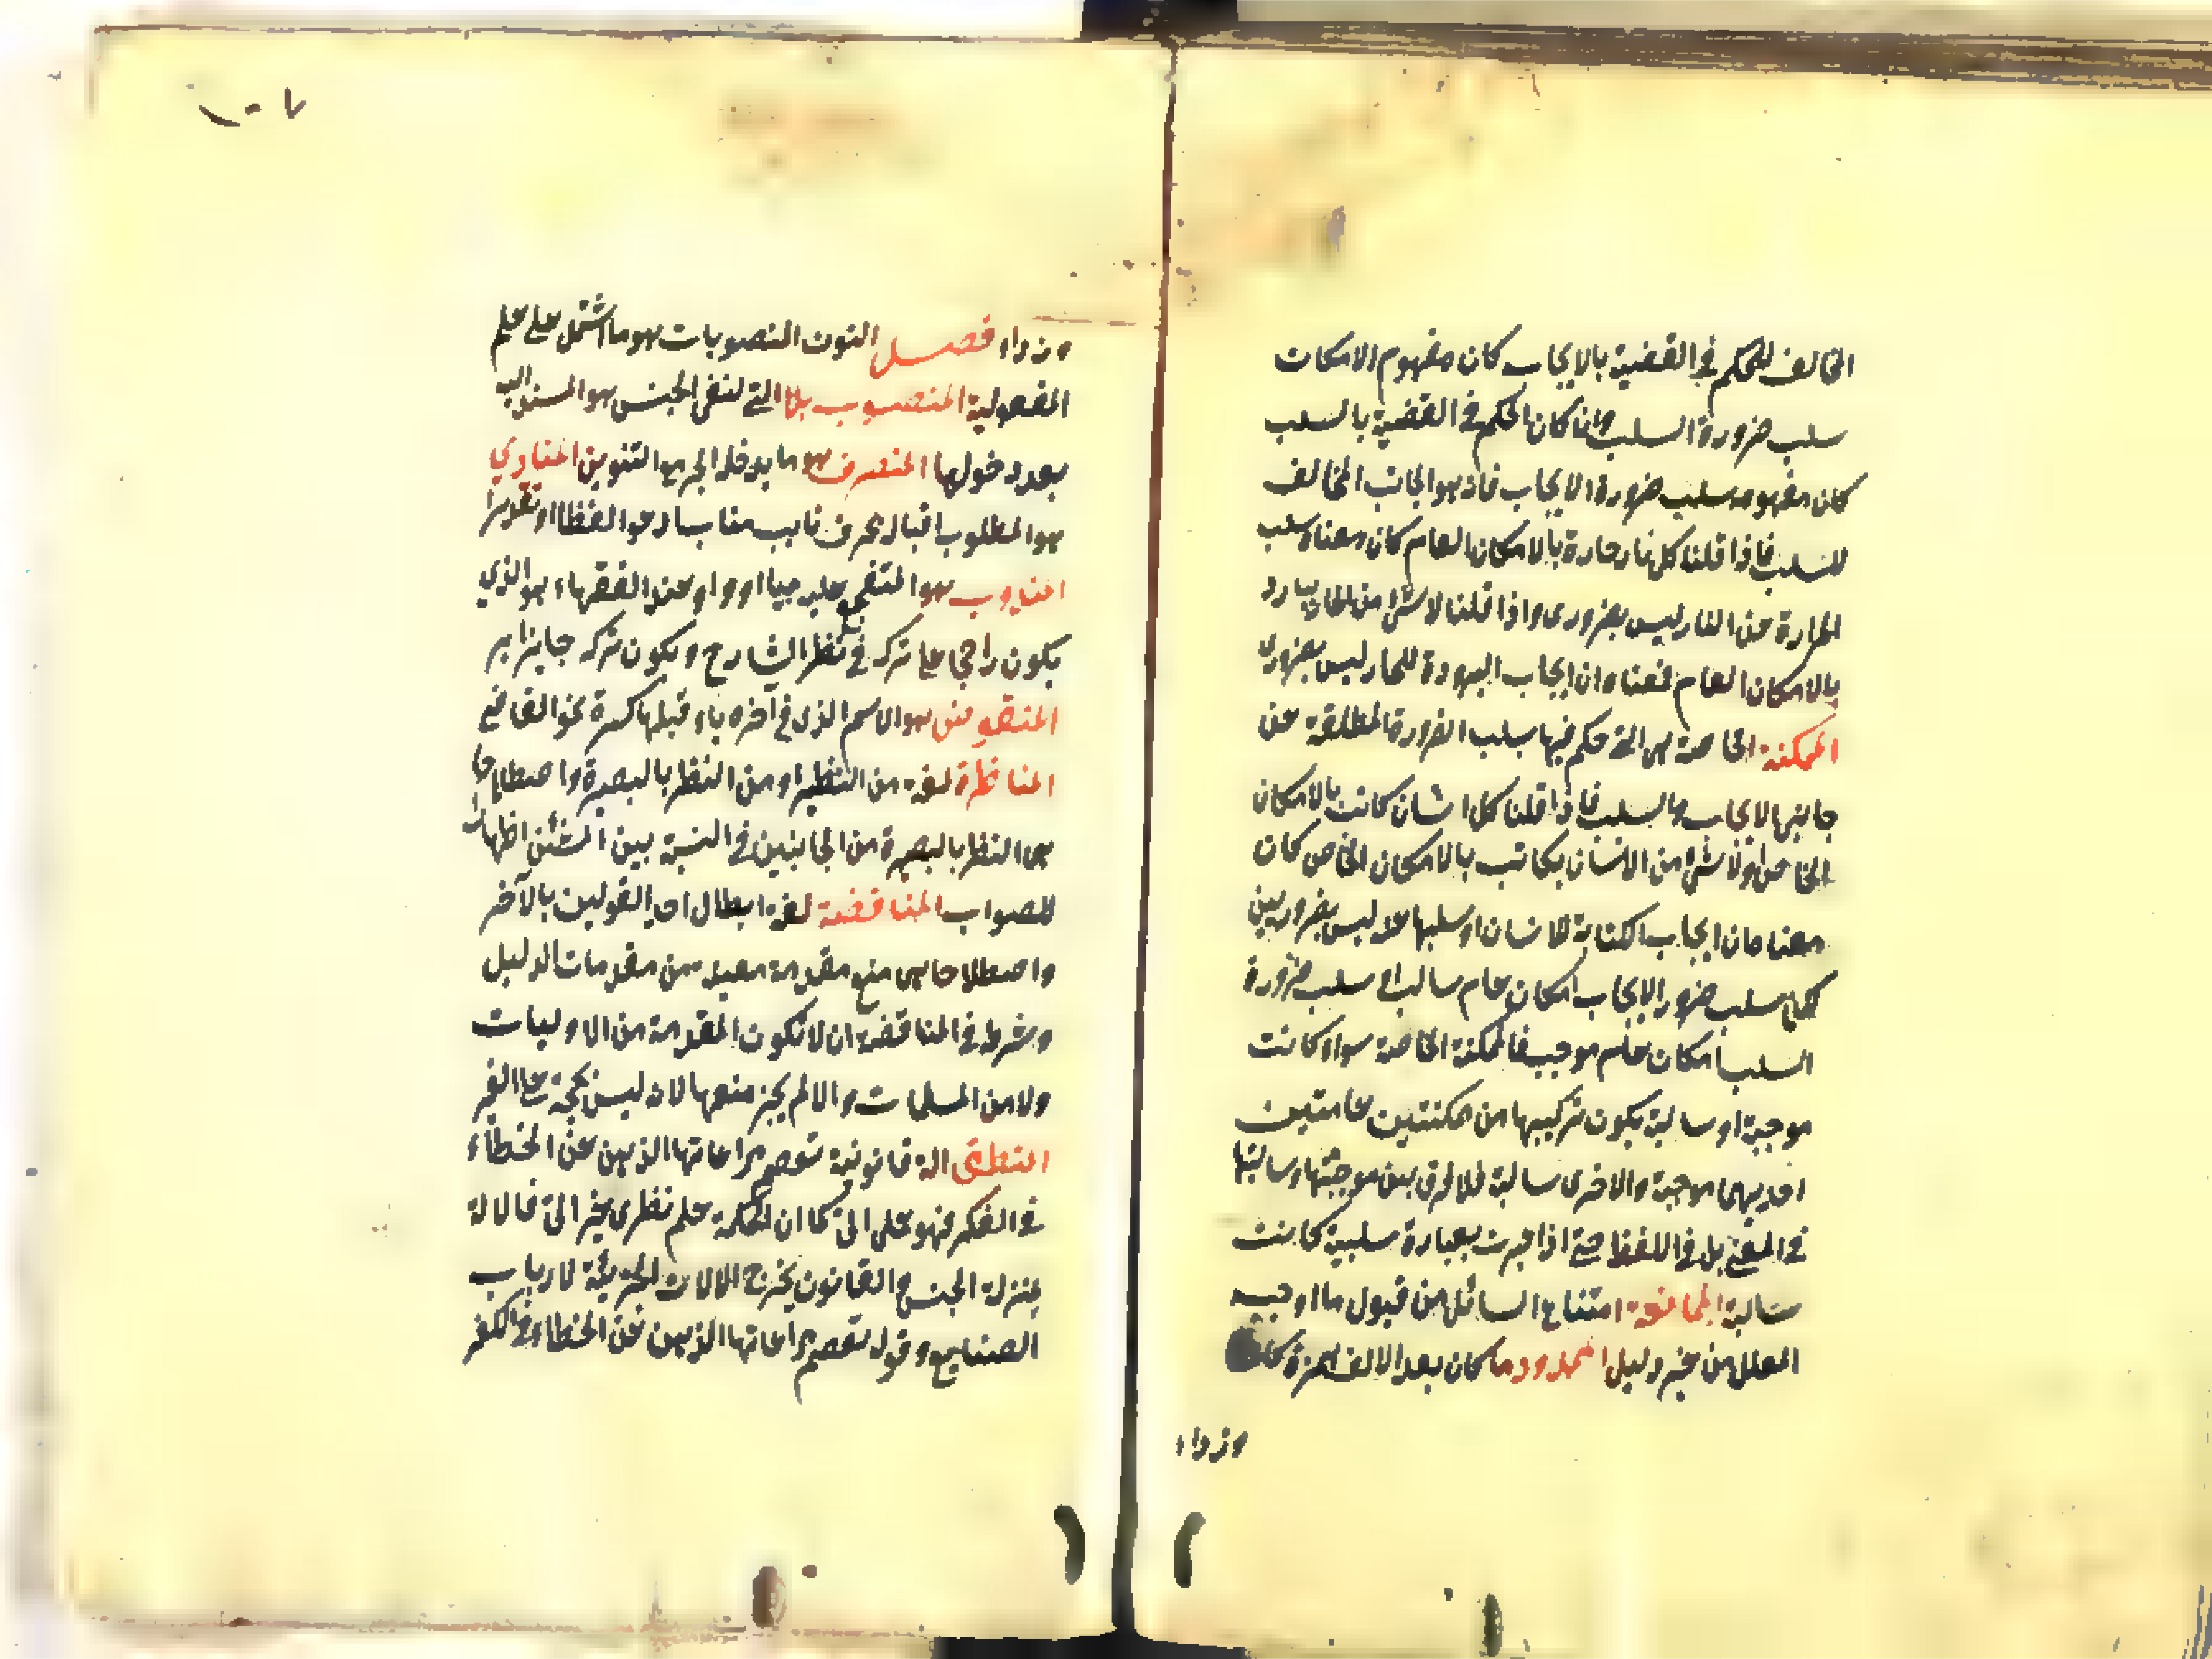 المخالف للحكم في القضية بالايجاب كان مفهوم الامكان
سلب ضرورة السلب وان كان الحكم في القضية بالسلب
كان مفهومه سلب ضرورة الايجاب فانه هو الجانب المخالف
للسلب فاذا قلنا كل نار حارة بالامكان العام كان معناه سلب
الحرارة عن النار ليس بضرورى واذا قلنا لا شئ من الحار ببارد
بالامكان العام فمعناه ان ايجاب البرودة للحار ليس بضرورى
الممكنة الخاصة هى التي حكم فيها بسلب الضرورة المطلقة عن
جانبى الايجاب والسلب فاذا قلنا كل انسان كاتب بالامكان
الخاص او لا شئ من الانسان بكاتب بالامكان الخاص كان
معناه ان ايجاب الكتابة للانسان او سلبها عنه ليس بضروريين
سلب ضرورة الايجاب امكان عام سالب سلب ضرورة
السلب امكان عام موجب فالممكنة الخاصة سواء كانت
موجبة او سالبة يكون تركيبها من ممكنتين عامتين
احديهما موجبة والاخرى سالبة فلا فرق بين موجبتها وسالبتها
في المعنى بل في اللفظ حتى اذا عبرت بعبارة سلبية كانت
سالبة الممانعة امتناع السائل من قبول ما اوجبه
المعلل من غير دليل الممدود ما كان بعد الالف همزة ككساء
ورداء
ورداء فصل النون المنصوبات هو ما اشتمل على علم
المفعولية المنصوب بلا التي لنفى الجنس هو المسند اليه
بعد دخولها المنصرف هو ما يدخله الجر مع التنوين المنادي
هو المطلوب اقباله بحرف نايب مناب ادعو لفظا او تقديرا
المندوب هو المتفجع عليه بيا او وا وعند الفقهاء هو الذي
يكون راجحا على تركه في نظر الشارع ويكون تركه جايزا
المنقوص هو الاسم الذى في آخره ياء قبلها كسرة نحو القاضى
المناظرة لغة من النظير او من النظر بالبصيرة واصطلاحا
هى النظر بالبصيرة من الجانبين في النسبة بين الشيئين اظهارا
للصواب المناقضة لغة ابطال احد القولين بالآخر
واصطلاحا هى منع مقدمة معينة من مقدمات الدليل
وشرط في المناقضة ان لا تكون المقدمة من الاوليات
ولا من المسلمات والا لم يجز منعها لانه ليس بحجة على الغير
المنطق آلة قانونية تعصم مراعاتها الذهن عن الخطاء
في الفكر فهو علم آلى كما ان الحكمة علم نظرى غير آلى فالآلة
بمنزلة الجنس والقانون يخرج الآلات الجزئية لارباب
الصنايع وقوله تعصم مراعاتها الذهن عن الخطاء في الفكر